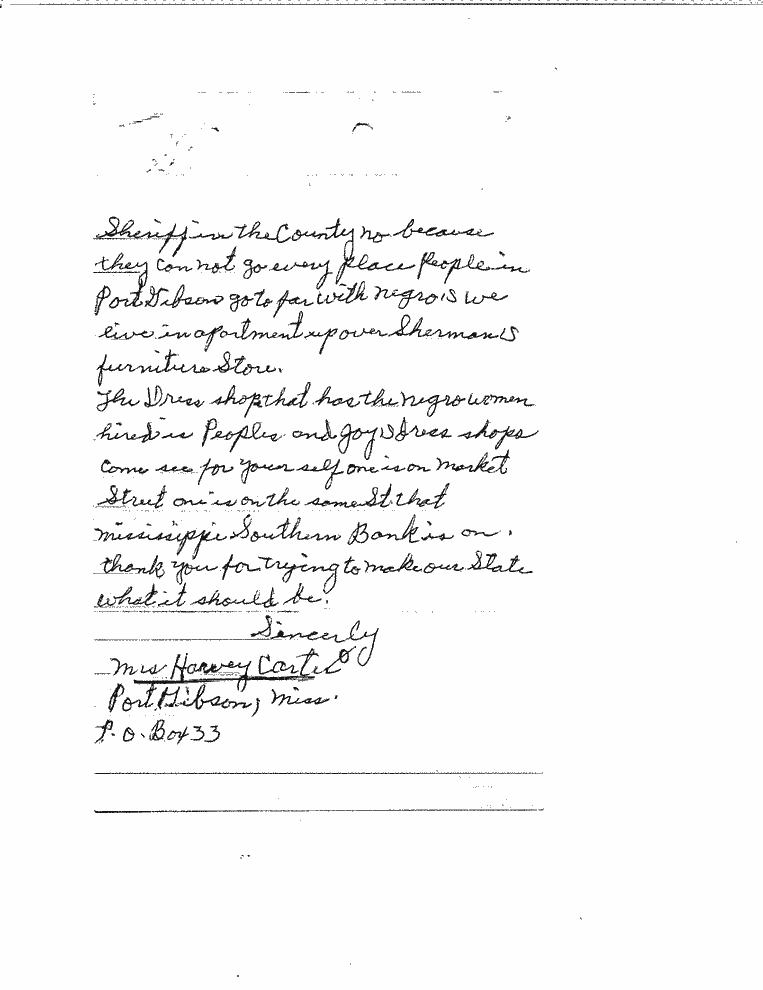 Sheriff in the County no because
they con not go every place People in
Port Gibson go to far with negro's we
live in apartment up over Sherman's
furniture Store.
The Dress shop that has the negro women
hired is Peoples and Joy's dress shops
Come see for your self one is on market
Street one is on the same St that
mississippi Southern Bank is on.
thank you for trying to make our State
what it should be.
Sincerly
Mrs Harvey Carter
Port Gibson, Miss.
P.O. Box 33